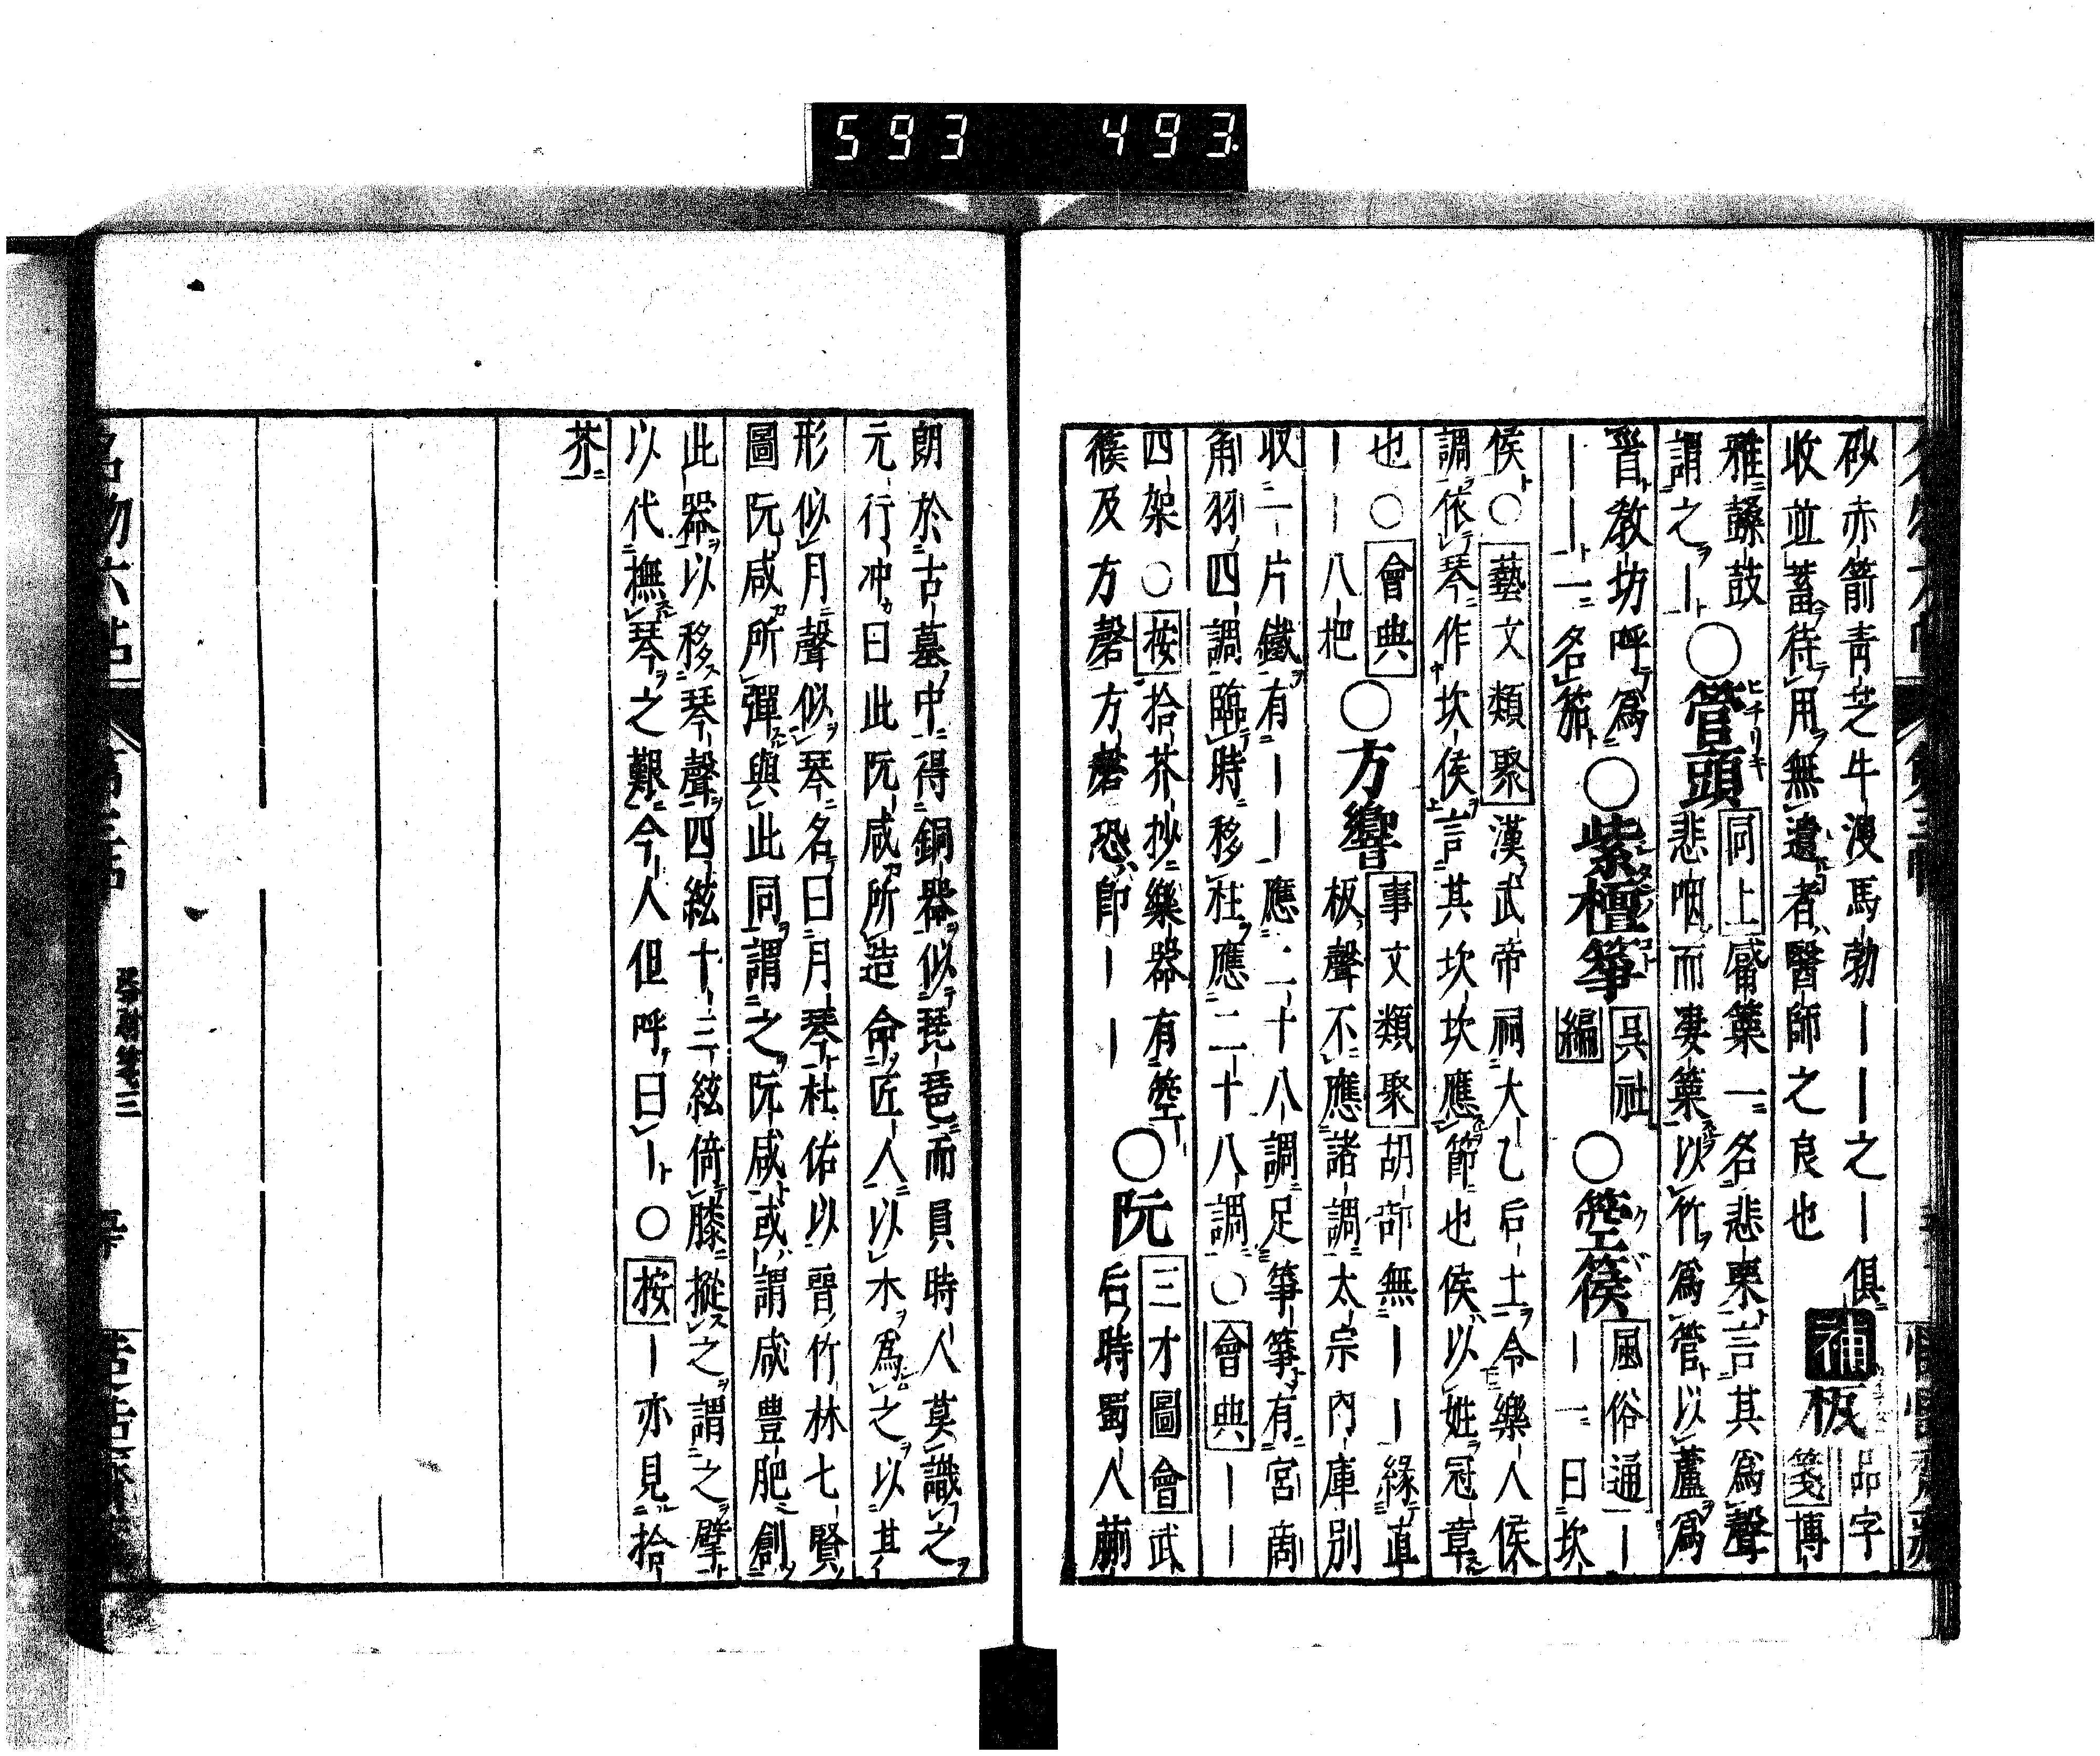 593 493.
砂赤箭青芝牛溲馬勃｜｜之｜俱
收並蓄待用無遺者醫師之良也
補
板
品字
箋
博
雅鼛鼓
謂之｜
○管頭
同上
觱篥一名悲栗言其爲聲
悲咽而凄篥以竹爲管以蘆爲
晉教坊呼爲
｜｜一名笳
○紫檀箏
吳社
編
○箜篌
風俗通
｜
｜一曰坎
侯○藝文類聚漢武帝祠大乙后土令樂人侯
調依琴作坎侯言其坎坎應節也侯以姓冠章
也○會典
｜｜八把
○方響
事文類聚
胡部無｜｜緣直
板聲不應諸調太宗內庫別
收二片鐵有｜｜應二十八調足箏箏有宮商
角羽四調臨時移柱應二十八調○會典｜｜
四架○按拾芥抄樂器有箜
篌及方磬方磬恐卽｜｜
○阮
三才圖會
武
后時蜀人蒯
朗於古墓中得銅器似琵琶而員時人莫識之
元行冲曰此阮咸所造命匠人以木爲之以其
形似月聲似琴名曰月琴杜佑以晉竹林七賢
圖阮咸所彈與此同謂之阮咸或謂咸豊肥創
此器以移琴聲四絃十三絃倚膝摐之謂之擘
以代撫琴之艱今人但呼曰｜○按｜亦見拾
芥